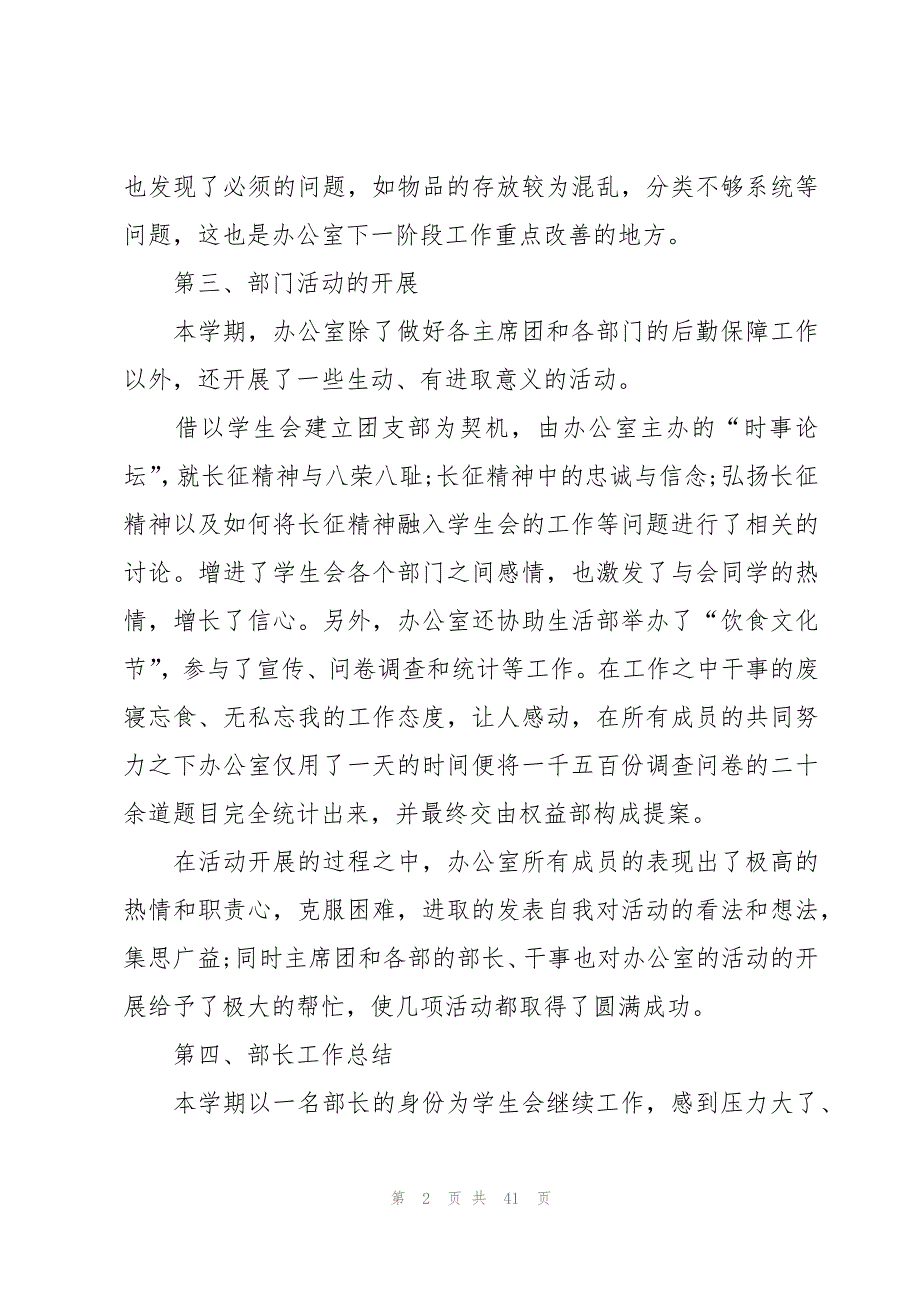 也发现了必须的问题，如物品的存放较为混乱，分类不够系统等
问题，这也是办公室下一阶段工作重点改善的地方。
第三、部门活动的开展
本学期，办公室除了做好各主席团和各部门的后勤保障工作
以外，还开展了一些生动、有进取意义的活动。
借以学生会建立团支部为契机，由办公室主办的“时事论
坛”，就长征精神与八荣八耻;长征精神中的忠诚与信念;弘扬长征
精神以及如何将长征精神融入学生会的工作等问题进行了相关的
讨论。增进了学生会各个部门之间感情，也激发了与会同学的热
情，增长了信心。另外，办公室还协助生活部举办了“饮食文化
节”，参与了宣传、问卷调查和统计等工作。在工作之中干事的废
寝忘食、无私忘我的工作态度，让人感动，在所有成员的共同努
力之下办公室仅用了一天的时间便将一千五百份调查问卷的二十
余道题目完全统计出来，并最终交由权益部构成提案。
在活动开展的过程之中，办公室所有成员的表现出了极高的
热情和职责心，克服困难，进取的发表自我对活动的看法和想法，
集思广益;同时主席团和各部的部长、干事也对办公室的活动的开
展给予了极大的帮忙，使几项活动都取得了圆满成功。
第四、部长工作总结
本学期以一名部长的身份为学生会继续工作，感到压力大了、
第 2 页 共 41 页